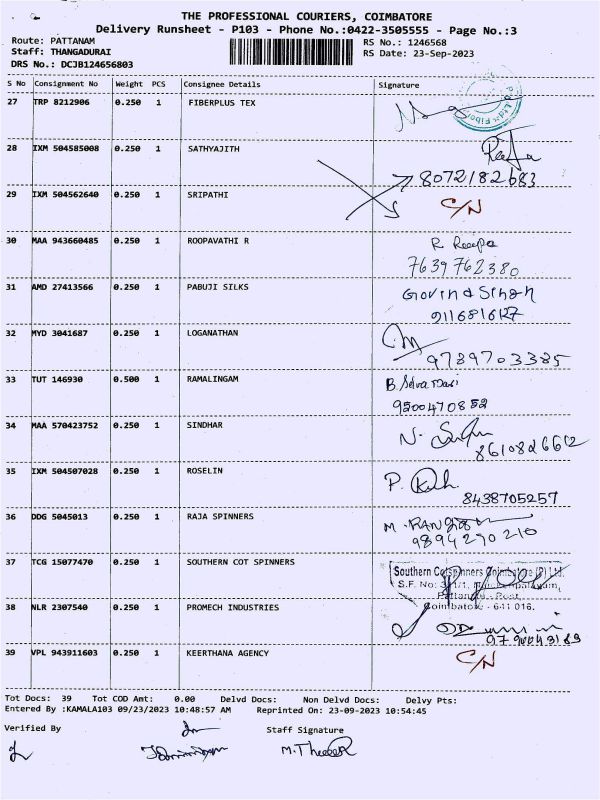 THE PROFESSIONAL COURIERS, COIMBATORE
Delivery Runsheet - P103 - Phone No.:0422-3505555 - Page No.:3
Route: PATTANAM RS No.: 1246568
Staff: THANGADURAI RS Date: 23-Sep-2023
DRS No.: DCJB124656803
S No Consignment No Weight PCS Consignee Details Signature
27 TRP 8212906 0.250 1 FIBERPLUS TEX
28 IXM 504585008 0.250 1 SATHYAJITH
8072182683
29 IXM 504562640 0.250 1 SRIPATHI C/N
30 MAA 943660485 0.250 1 ROOPAVATHI R R Roopa
7639762380
31 AMD 27413566 0.250 1 PABUJI SILKS Govind Singh
32 MYD 3041687 0.250 1 LOGANATHAN
9789703385
33 TUT 146930 0.500 1 RAMALINGAM B. Selvarani
9500470852
34 MAA 570423752 0.250 1 SINDHAR N.
8610826612
35 IXM 504507028 0.250 1 ROSELIN P.
8438705257
36 DDG 5045013 0.250 1 RAJA SPINNERS M.
9894290210
37 TCG 15077470 0.250 1 SOUTHERN COT SPINNERS Southern Cotspinners Coimbatore (P) Ltd.
S.F. No:
Pattanam - Post,
38 NLR 2307540 0.250 1 PROMECH INDUSTRIES Coimbatore - 641 016.
39 VPL 943911603 0.250 1 KEERTHANA AGENCY C/N
Tot Docs: 39 Tot COD Amt: 0.00 Delvd Docs: Non Delvd Docs: Delvy Pts:
Entered By :KAMALA103 09/23/2023 10:48:57 AM Reprinted On: 23-09-2023 10:54:45
Verified By Staff Signature